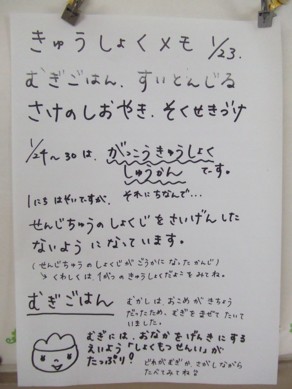 きゅうしょくメモ 1/23.
むぎごはん. すいとんじる
さけのしおやき. そくせきづけ
1/24~30は、がっこうきゅうしょく
しゅうかん です。
1にちはやいですが、それにちなんで…
せんじちゅうのしょくじをさいげんした
ないようになっています。
(せんじちゅうのしょくじがごうかになったかんじ)
↳くわしくは、1がつのきゅうしょくだよりをみてね。
むぎごはん
むかしは、おこめがきちょう
だったため、むぎをまぜてたいて
いました。
むぎには、おなかをげんきにする
えいよう「しょくもつせんい」が
たっぷり!
どれがむぎか、さがしながら
たべてみてね